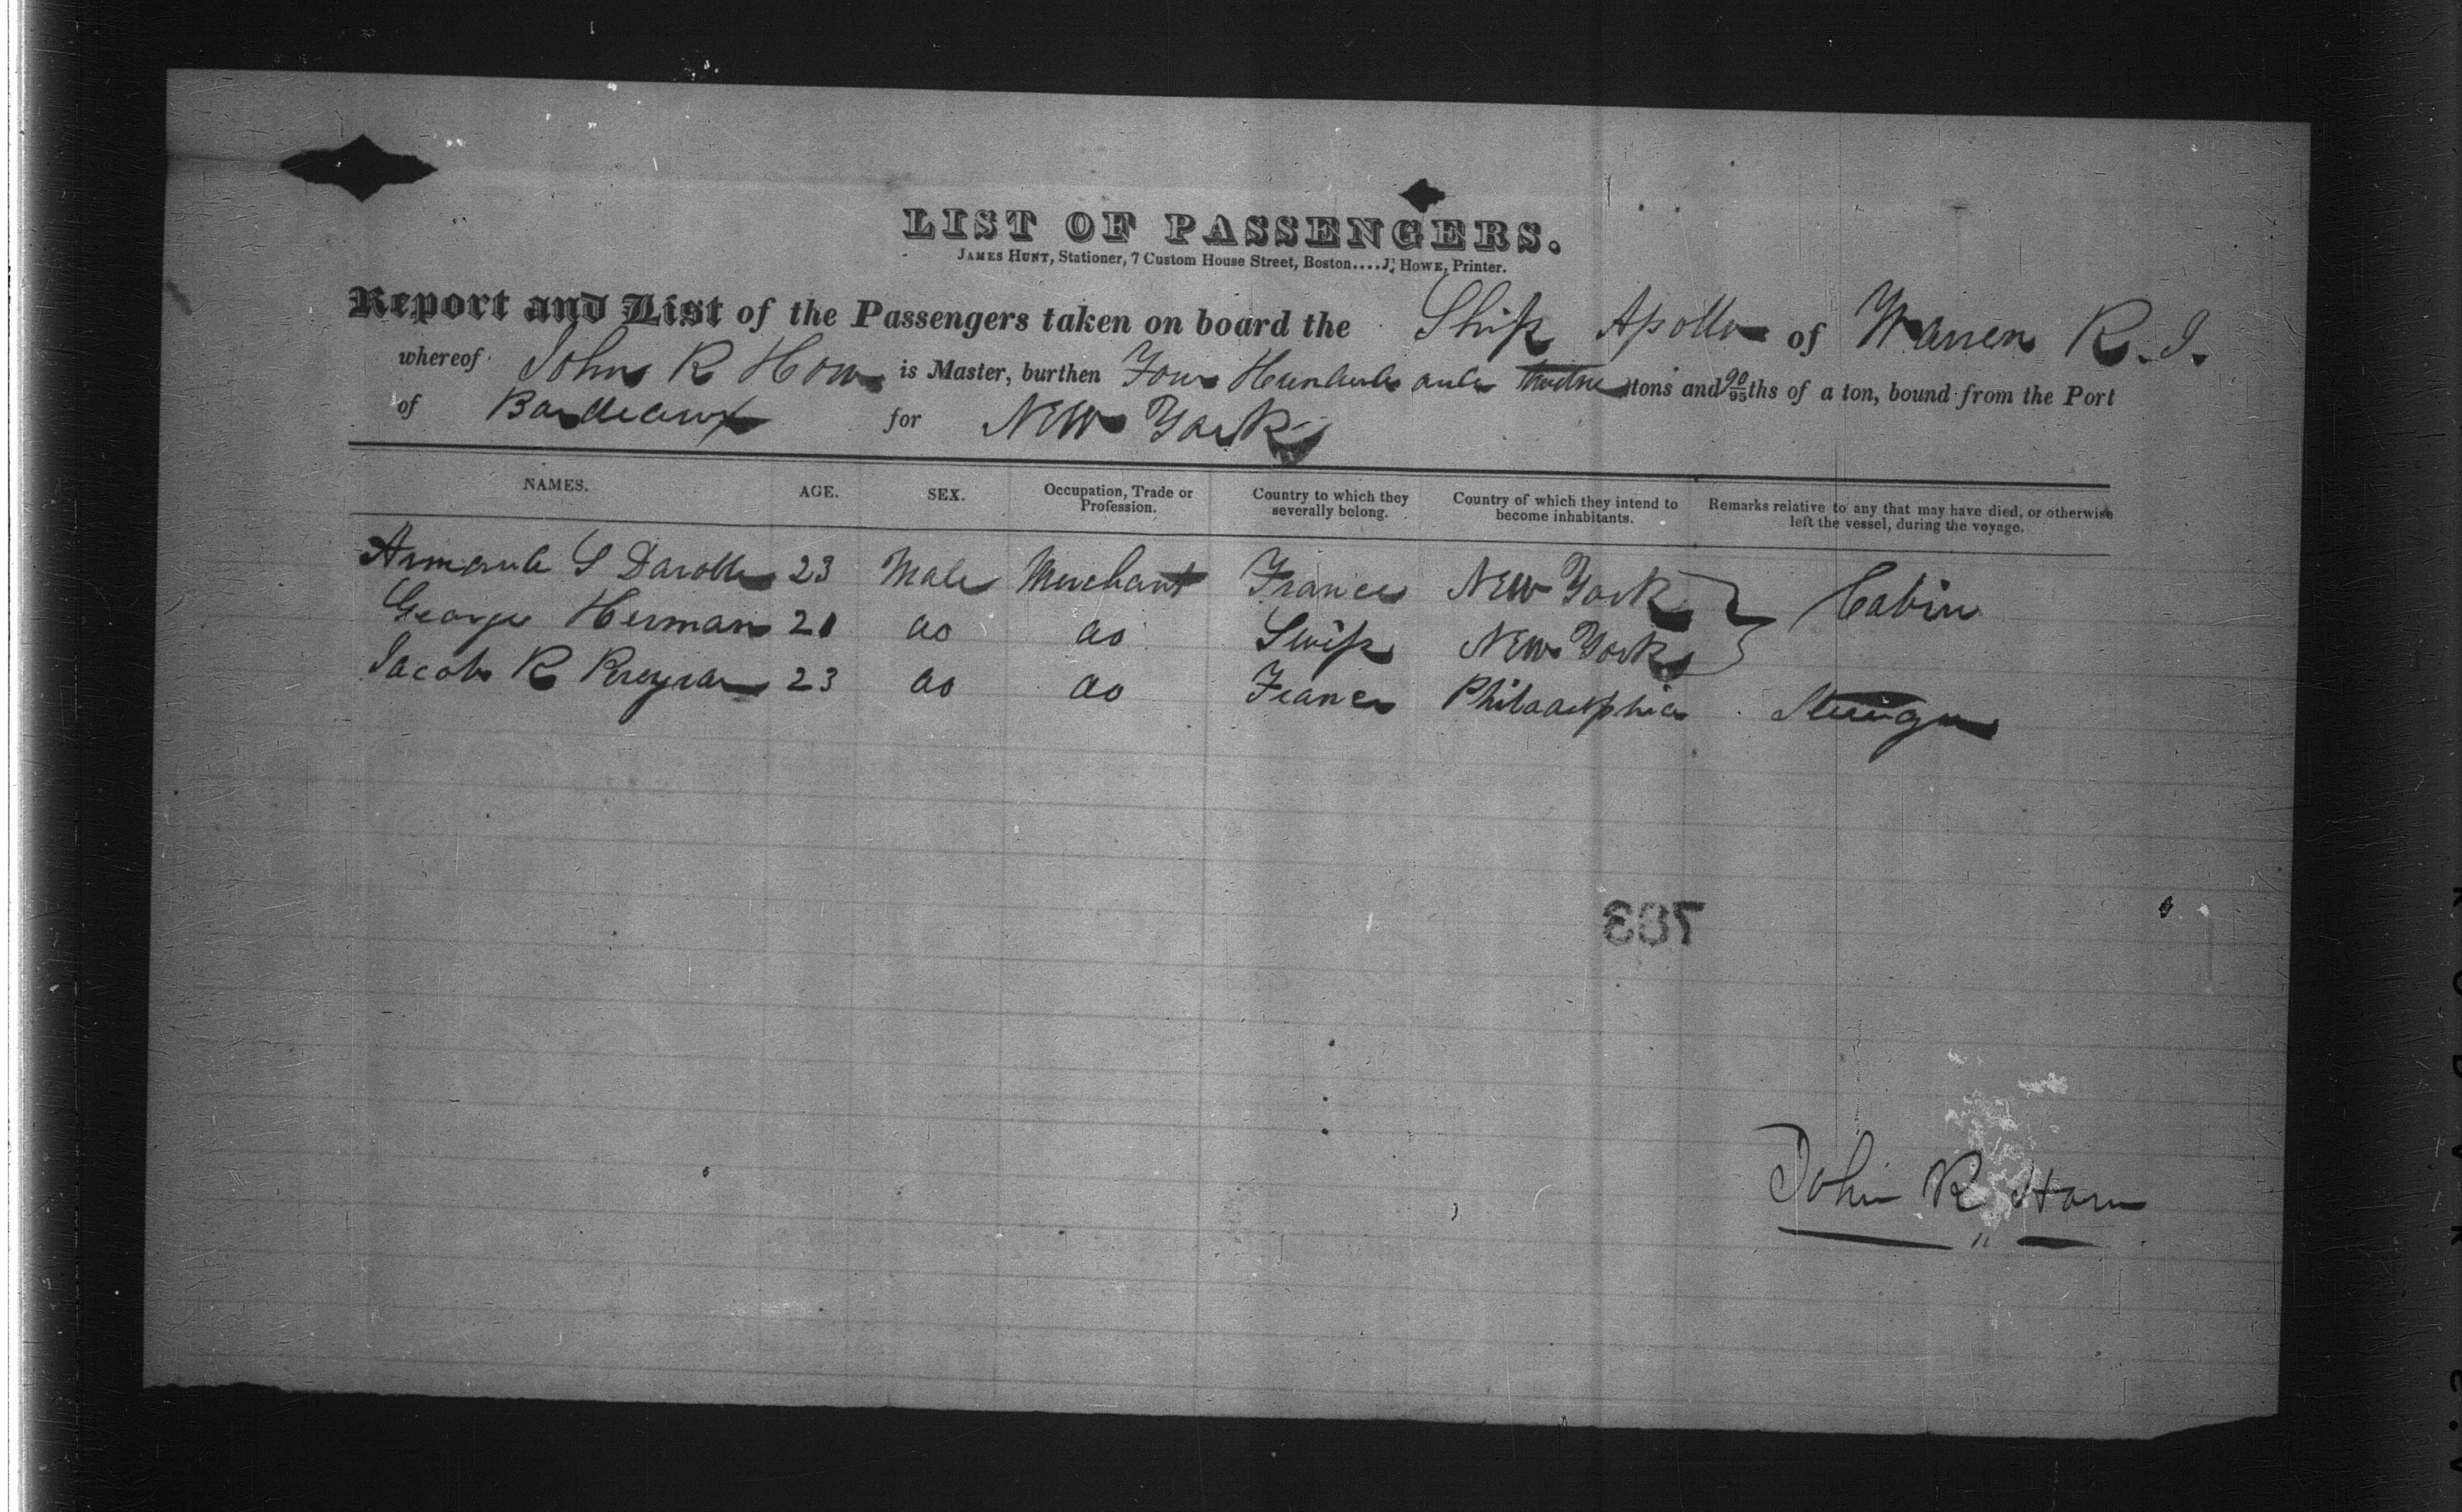 LIST OF PASSENGERS.
JAMES HUNT, Stationer, 7 Custom House Street, Boston....J. HOWE, Printer.
Report and List of the Passengers taken on board the Ship Apollo of Warren R. I.
whereof John R Horn is Master, burthen Four Hundred and twelve tons and 90/95ths of a ton, bound from the Port
of Bordeaux for New York
NAMES. AGE. SEX. Occupation, Trade or Profession. Country to which they severally belong. Country of which they intend to become inhabitants. Remarks relative to any that may have died, or otherwise left the vessel, during the voyage.
Armand S 23 Male Merchant France New York Cabin
George Herman 21 do do Swiss New York
Jacob R 23 do do France Philadelphia Steerage
783
John R Horn